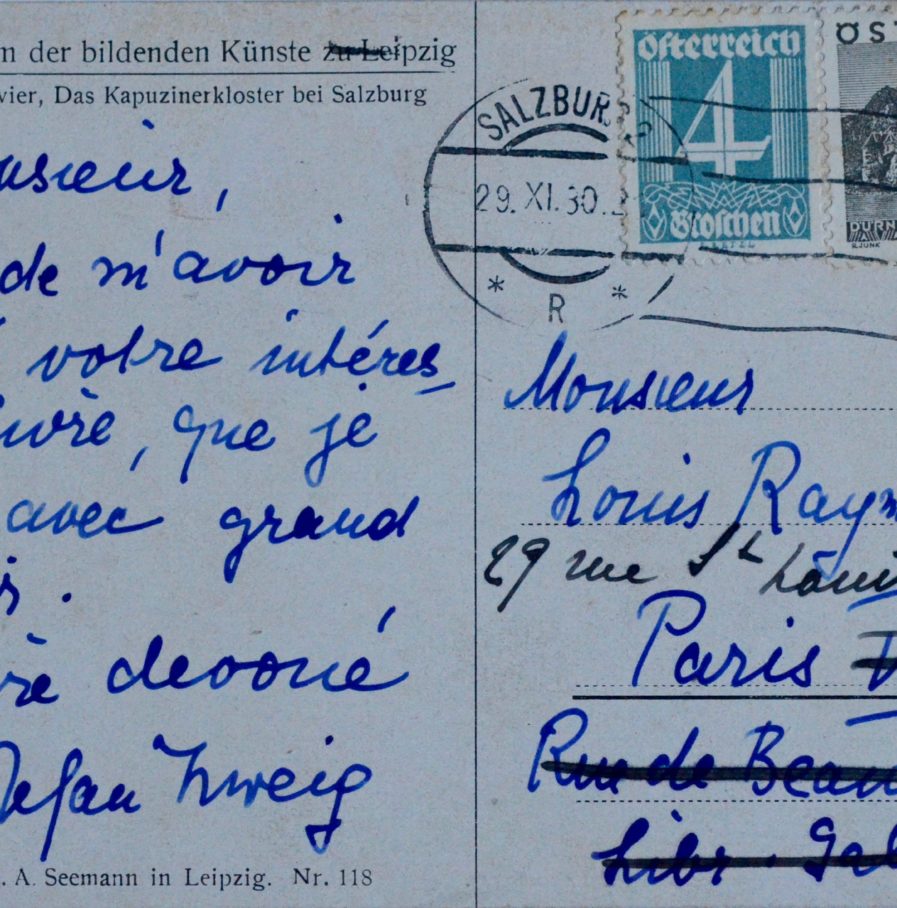 n der bildenden Künste zu Leipzig
vier, Das Kapuzinerkloster bei Salzburg
nsieur,
de m'avoir
votre intéres
livre, que je
avec grand
devoué
Stefan Zweig
. A. Seemann in Leipzig. Nr. 118
SALZBURG 2
29. XI. 30.
* R *
Österreich
4
Groschen
ÖST
DÜRN
Monsieur
Louis Raym
29 rue St Louis
Paris
Rue de Beau
Libr. Gal